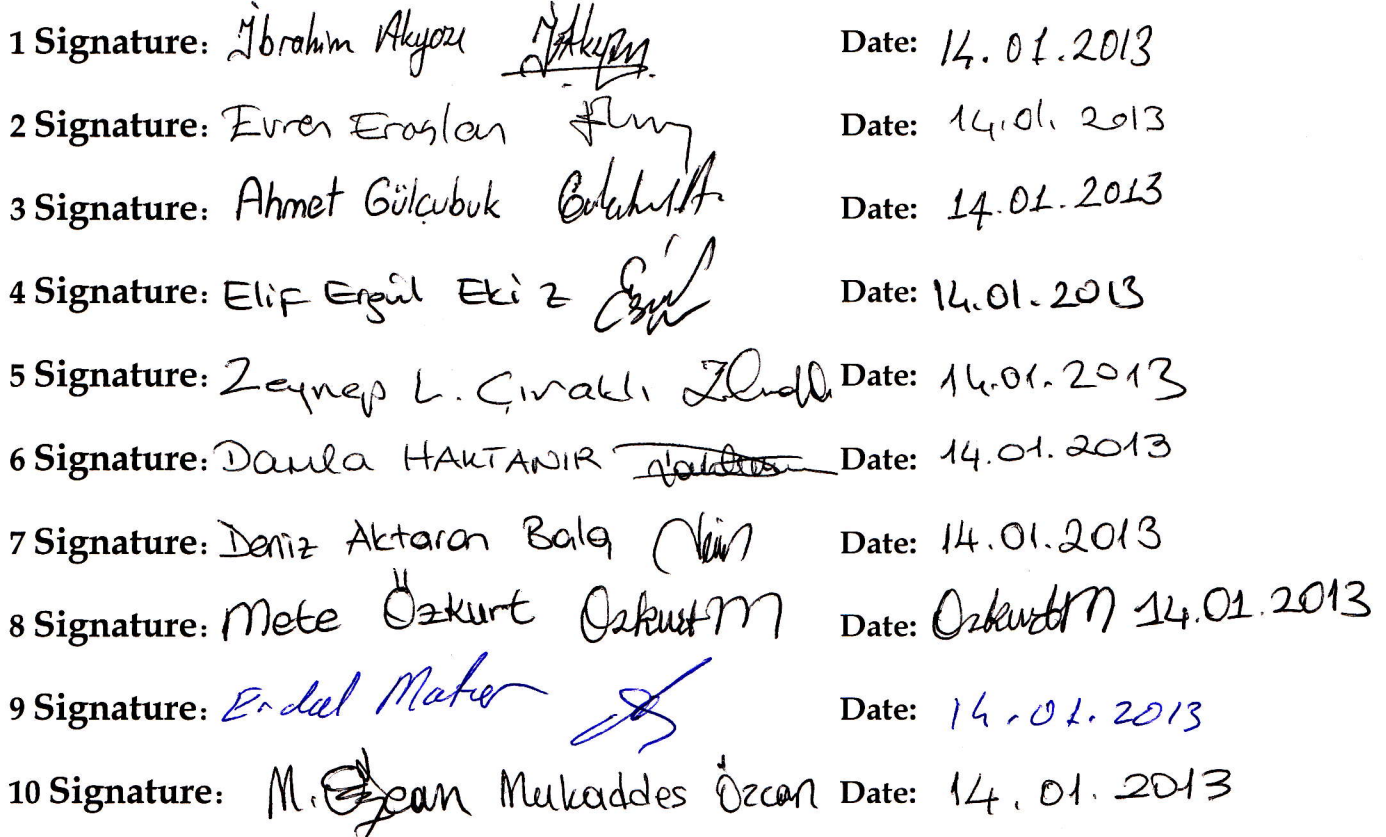 1 Signature: İbrahim Akyozı Date: 14.01.2013
2 Signature: Evren Eraslan Date: 14.01.2013
3 Signature: Ahmet Gülçubuk Date: 14.01.2013
4 Signature: Elif Ergül Ekiz Date: 14.01.2013
5 Signature: Zeynep L. Çıraklı Date: 14.01.2013
6 Signature: Damla HAKTANIR Date: 14.01.2013
7 Signature: Deniz Aktaran Bala Date: 14.01.2013
8 Signature: Mete Özkurt OzkurtM Date: OzkurtM 14.01.2013
9 Signature: Erdal Date: 14.01.2013
10 Signature: M. Özcan Mukaddes Özcan Date: 14.01.2013